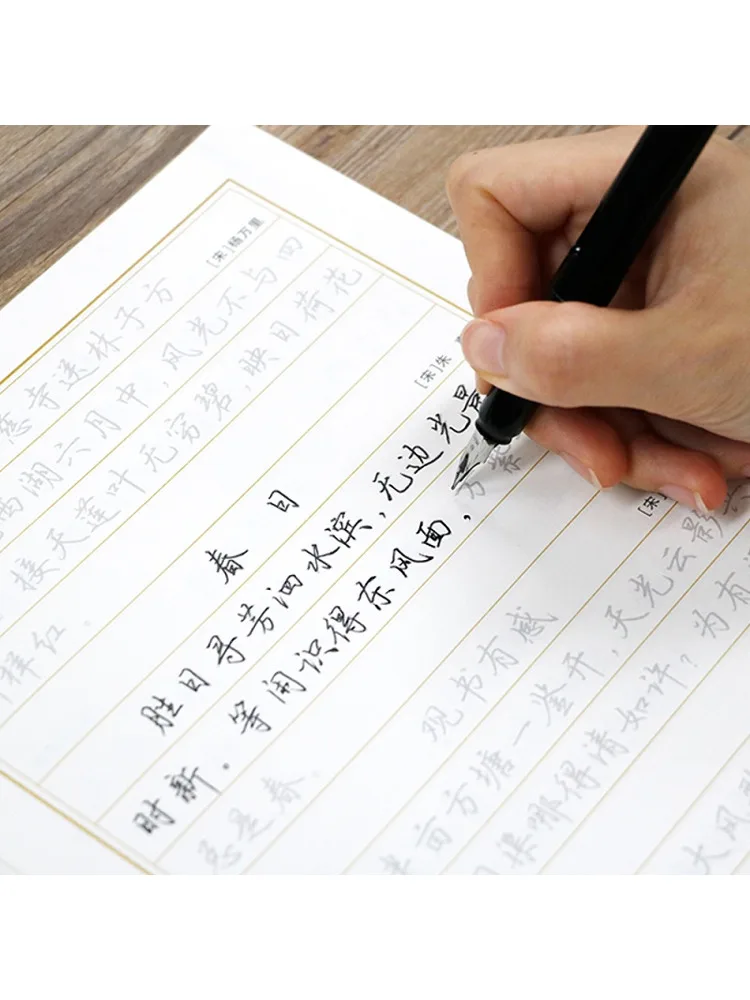 慈寺送林子方
[宋]杨万里
西湖六月中,风光不与四
接天莲叶无穷碧,映日荷花
样红.
春日
[宋]朱
胜日寻芳泗水滨,无边光景
时新.等闲识得东风面,万紫
总是春.
观书有感
[宋]
亩方塘一鉴开,天光云影
渠哪得清如许?为有
大风